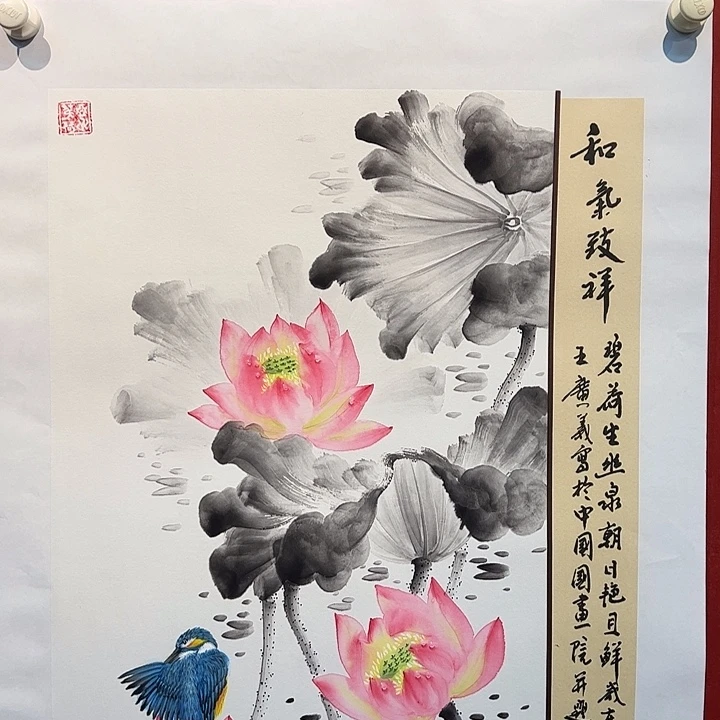 和氣致祥
碧荷生幽泉朝日艳且鲜
王廣義寫於中國國畫院并